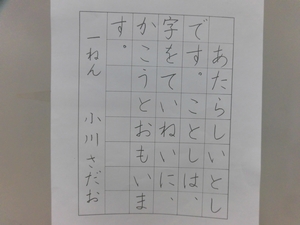 あたらしいとし
です。ことしは、
字をていねいに、
かこうとおもいま
す。
一ねん 小川さだお